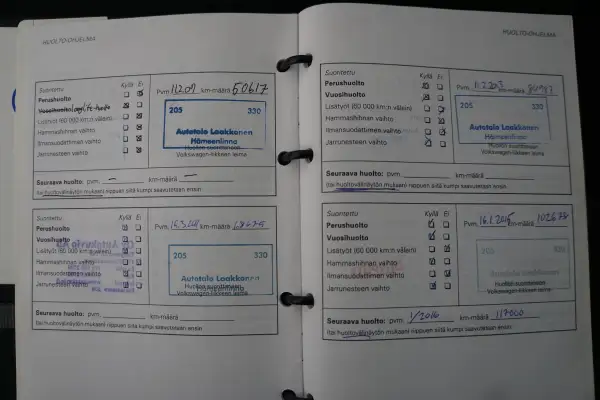 HUOLTO-OHJELMA
Suoritettu Kyllä Ei
Perushuolto
Vuosihuolto
Lisätyöt (60 000 km:n välein)
Hammashihnan vaihto
Ilmansuodattimen vaihto
Jarrunesteen vaihto
Pvm. km-määrä 50617
205 330
Autotalo Laakkonen
Hämeenlinna
Huollon suorittaneen
Volkswagen-liikkeen leima
Seuraava huolto: pvm. – km-määrä –
(tai huoltovälinäytön mukaan) riippuen siitä kumpi saavutetaan ensin
Suoritettu Kyllä Ei
Perushuolto
Vuosihuolto
Lisätyöt (60 000 km:n välein)
Hammashihnan vaihto
Ilmansuodattimen vaihto
Jarrunesteen vaihto
Pvm. km-määrä
205 330
Autotalo Laakkonen
Huollon suorittaneen
Volkswagen-liikkeen leima
Seuraava huolto: pvm. km-määrä
(tai huoltovälinäytön mukaan) riippuen siitä kumpi saavutetaan ensin
HUOLTO-OHJELMA
Suoritettu Kyllä Ei
Perushuolto
Vuosihuolto
Lisätyöt (60 000 km:n välein)
Hammashihnan vaihto
Ilmansuodattimen vaihto
Jarrunesteen vaihto
Pvm. 11.2.2013 km-määrä
205 330
Autotalo Laakkonen
Hämeenlinna
Huollon suorittaneen
Volkswagen-liikkeen leima
Seuraava huolto: pvm. km-määrä
(tai huoltovälinäytön mukaan) riippuen siitä kumpi saavutetaan ensin
Suoritettu Kyllä Ei
Perushuolto
Vuosihuolto
Lisätyöt (60 000 km:n välein)
Hammashihnan vaihto
Ilmansuodattimen vaihto
Jarrunesteen vaihto
Pvm. 16.1.2015 km-määrä
205 330
Autotalo Laakkonen
Huollon suorittaneen
Volkswagen-liikkeen leima
Seuraava huolto: pvm. 1/2016 km-määrä 117000
(tai huoltovälinäytön mukaan) riippuen siitä kumpi saavutetaan ensin